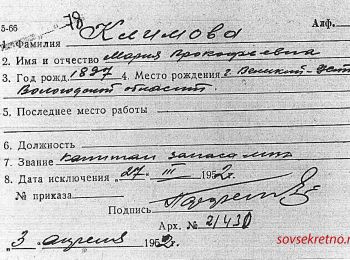 5-66
78
Алф.
1. Фамилия Климова
2. Имя и отчество Мария Прокофьевна
3. Год рожд. 1897 4. Место рождения г. Великий-Устюг
Вологодской области
5. Последнее место работы
6. Должность
7. Звание капитан запаса
8. Дата исключения "27" III 1952 г.
№ приказа
Подпись
Арх. № 21430
"3 апреля 1952 г.
sovsekretno.r